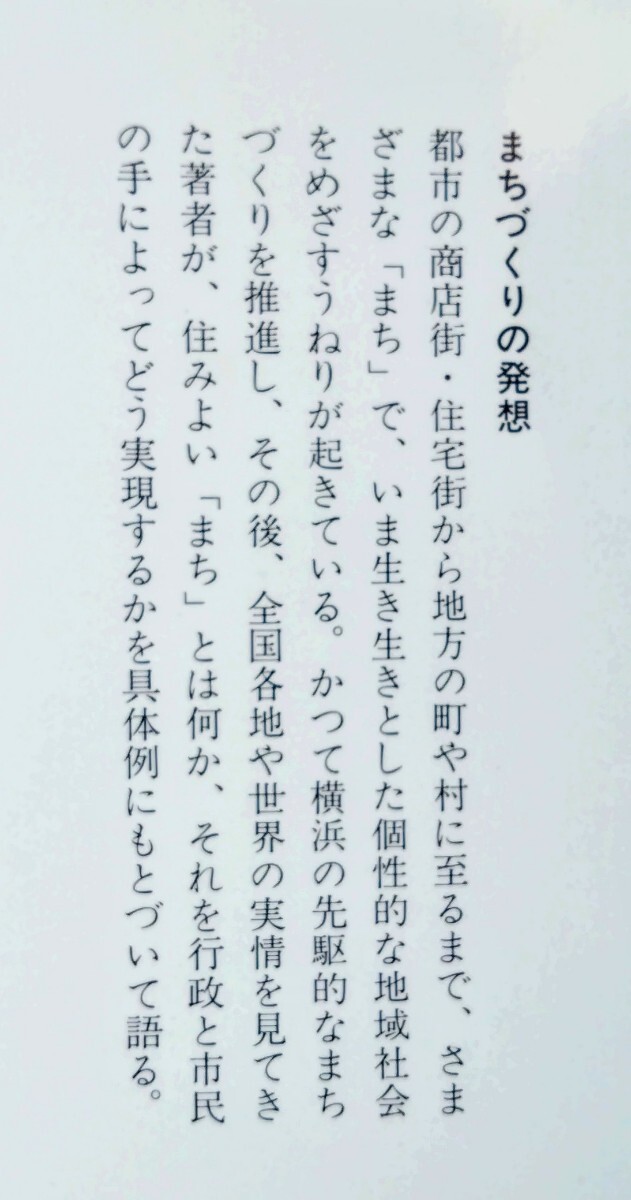 まちづくりの発想
都市の商店街・住宅街から地方の町や村に至るまで、さま
ざまな「まち」で、いま生き生きとした個性的な地域社会
をめざすうねりが起きている。かつて横浜の先駆的なまち
づくりを推進し、その後、全国各地や世界の実情を見てき
た著者が、住みよい「まち」とは何か、それを行政と市民
の手によってどう実現するかを具体例にもとづいて語る。